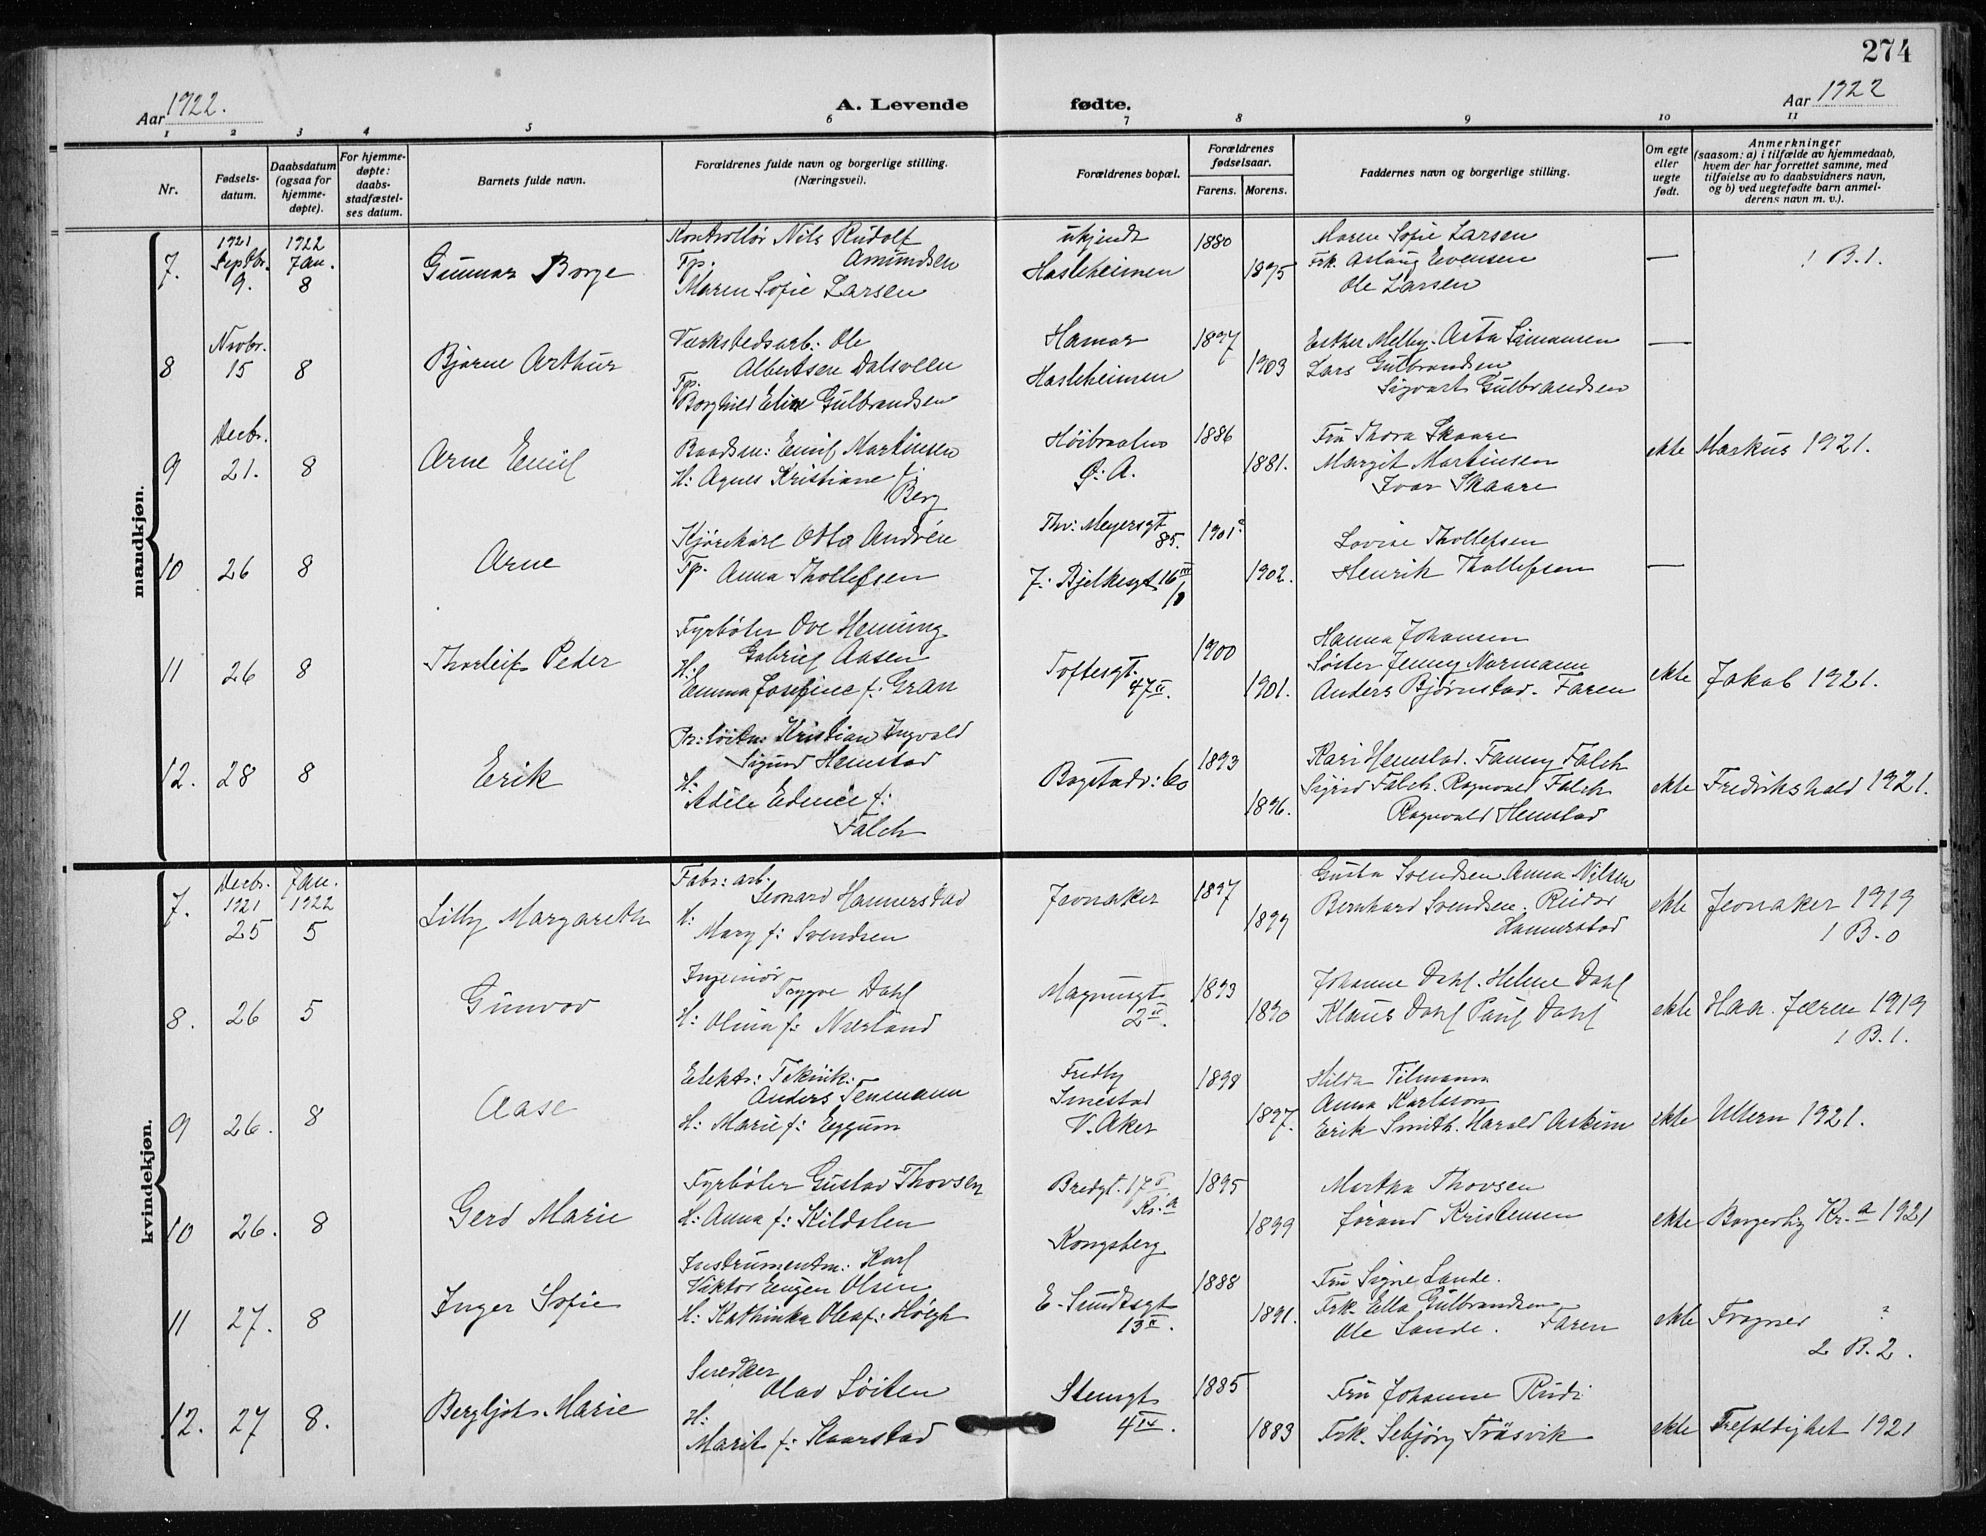 274
Aar 1922.
A. Levende
fødte.
Aar 1922
1 2 3 4 5 6 7 8 9 10 11
Nr.
Fødsels-
datum.
Daabsdatum
(ogsaa for
hjemme-
døpte).
For hjemme-
døpte:
daabs-
stadfæstel-
ses datum.
Barnets fulde navn.
Forældrenes fulde navn og borgerlige stilling.
(Næringsvei).
Forældrenes bopæl.
Forældrenes
fødselsaar.
Farens. Morens.
Faddernes navn og borgerlige stilling.
Om egte
eller
uegte
født.
Anmerkninger
(saasom: a) i tilfælde av hjemmedaab,
hvem der har forrettet samme, med
tilføielse av to daabsvidners navn,
og b) ved uegtefødte barn anmel-
derens navn m. v.).
mandkjøn.
7.
1921
Septbr.
9.
1922
Jan.
8
Gunnar Borge
Kontrollør Nils Rudolf
Amundsen
Tp.
Maren Sofie Larsen
ukjendt
Hasleheimen
1880
1895
Maren Sofie Larsen
Frk. Aslaug Evensen
Ole Larsen
—
1 B.1.
8
Novbr.
15
8
Bjarne Arthur
Værkstedsarb: Ole
Albertsen Dalsveen
Tp.
Borghild Eline Gulbrandsen
Hamar
Hasleheimen
1897
1903
Esther Melby. Asta Simonsen
Lars Gulbrandsen
Sigvart Gulbrandsen
—
9
Decbr.
21.
8
Arne Emil
Baadsm: Emil Martinsen
H: Agnes Kristiane f.
Berg
Høibraaten
Ø: A.
1886
1881.
Fru Thora Skaare
Margit Martinsen
Ivar Skaare
ekte
Markus 1921.
10
26
8
Arne
Kjørekarl Otto Andrén
Tp.
Anna Thollefsen
Thv: Meyersgt
85.
J: Bjelkesgt 16 III
1901?
1902.
Lovise Thollefsen
Henrik Thollefsen
—
11
26
8
Thorleif Peder
Fyrbøter Ove Henning
Gabriel Aasen
H:
Emma Josefine f: Gran
Toftesgt.
47 II.
1900
1901.
Hanna Johansen
Søster Jenny Normann
Anders Bjørnstad. Faren
ekte
Jakob 1921.
12.
28
8
Erik
Pr: løitn: Kristian Ingvald
Sigurd Hemstad
H:
Adele Edmée f:
Falch
Bogstadv: 60
1893
1896.
Kari Hemstad. Fanny Falch
Sigrid Falch. Ragnvald Falch
Ragnvald Hemstad
ekte
Fredrikshald 1921.
kvindekjøn.
7.
Decbr.
1921
25
Jan.
1922
5
Lilly Margareth
Fabr: arb.
Leonard Hammerstad
H:
Mary f: Svendsen
Jevnaker
1897
1899
Gusta Svendsen. Anna Nilsen
Bernhard Svendsen. Reidar
Hammerstad
ekte
Jevnaker 1919
1 B. 0
8.
26
5
Gunvor
Ingeniør
Trygve Dahl
H: Olina f: Nærland
Magnusgt
2 II.
1893
1890
Johanne Dahl. Helene Dahl
Klaus Dahl Paul Dahl
ekte
Haa. Jæren 1919
1 B.1.
9
26.
8
Aase
Elektr: Teknik:
Anders Tenmann
H: Marie f: Eggum
Fredly
Smestad
V. Aker
1898
1897.
Hilda Tilmann
Anna Karlsson
Erik Smith. Harald Askim
ekte
Ullern 1921.
10
26.
8
Gerd Marie
Fyrbøter Gustav Thovsen
H: Anna f: Kildalen
Bredgt. 17 II
Kr. a
Kongsberg
1895
1899
Martha Thovsen
Jørand Kristensen
ekte
Borgerlig Kr. a 1921
11
27.
8
Inger Sofie
Instrumentm: Karl
Viktor Eugen Olsen
H: Kathinka Olea f: Høegh
E. Sundtsgt
13 II.
1888
1891.
Fru Signe Sande.
Frk. Ella Gulbrandsen
Ole Sande. Faren
ekte
Frogner ?
2 B. 2.
12.
27
8.
Bergljot Marie
Snedker
Olav Løiten
H:
Marit f: Kaarstad
Stensgt
4 IV.
1885
1883
Fru Johanne Rudi
Frk. Sebjørg Träsvik
ekte
Trefoldighet 1921